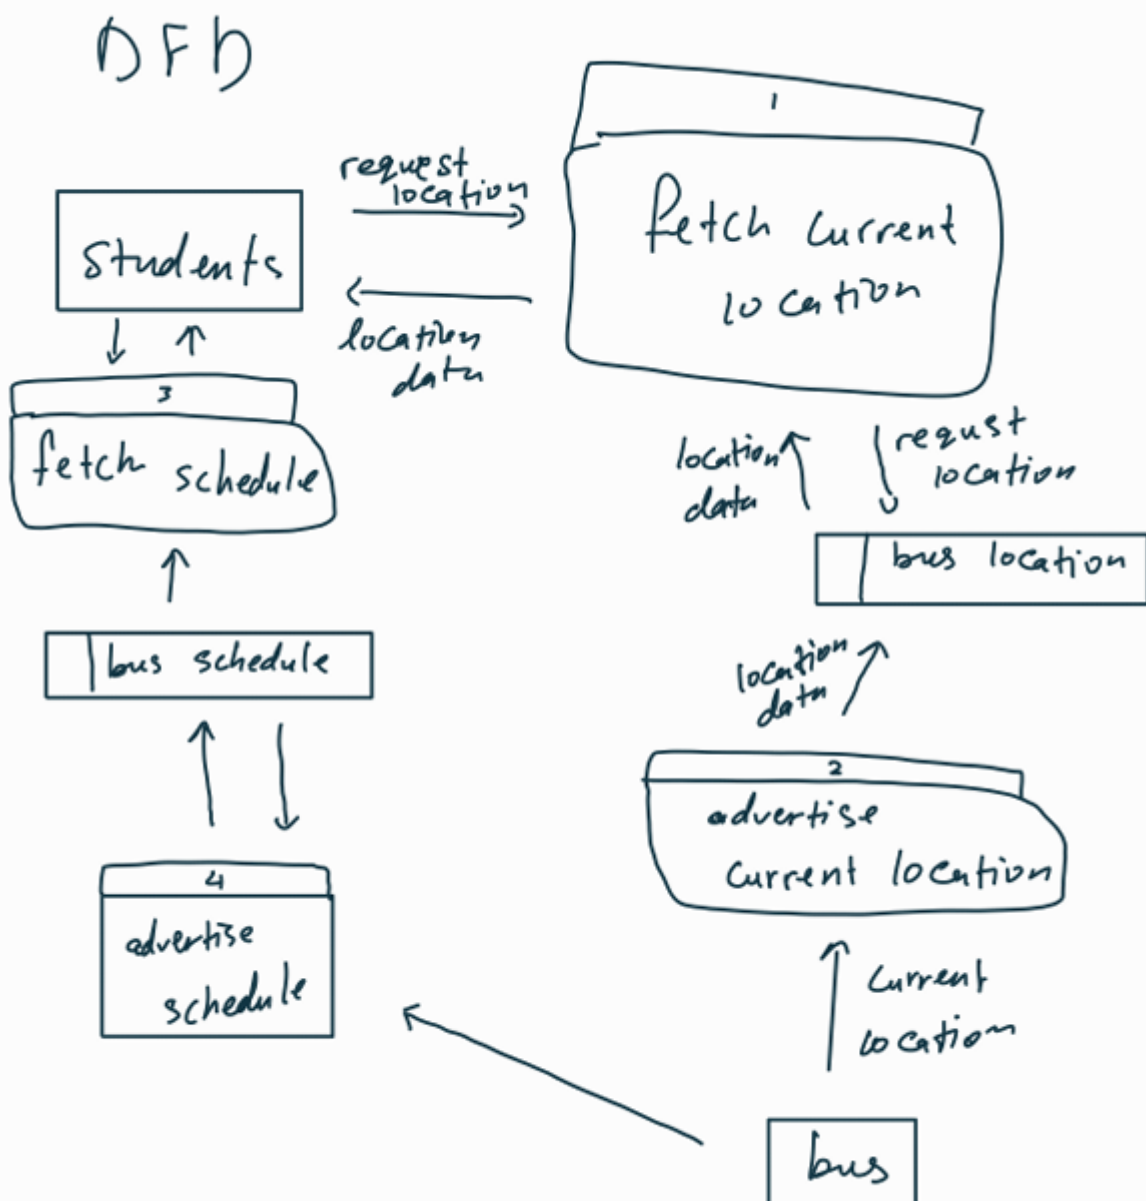 DFD
1
request
location
fetch current
location
students
location
data
3
fetch schedule
location
data
requst
location
bus location
bus schedule
location
data
2
advertise
current location
4
advertise
schedule
current
location
bus